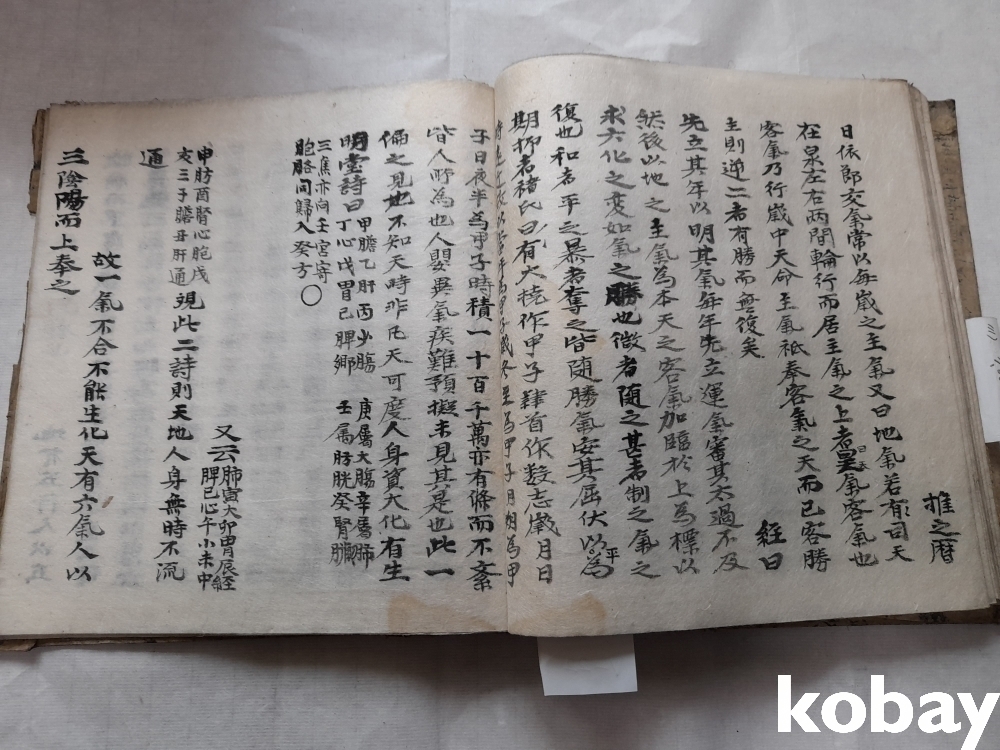 推之曆
日依郎交氣常以每歲之主氣又曰地氣若有司天
在泉左右两間輪行而居主氣之上者曰客氣客氣也
客氣乃行歲中天命主氣祗奉客氣之天而已客勝
主則逆二者有勝而無復矣 經曰
先立其年以明其氣每年先立運氣審其太過不及
然後以地之主氣為本天之客氣加臨於上為標以
求六化之变如氣之勝也微者隨之甚者制之氣之
復也和者平之暴者奪之皆隨勝氣安其屈伏以平為
期抑者褚氏曰有大撓作甲子隸首作数志歲月日
為甲子歲冬至為甲子月朔為甲
子日夜半為甲子時積一十百千萬亦有條而不紊
皆人所為也人嬰異氣疾難預擬未見其是也此一
偏之見地不知天時非凡天可度人身資大化有生
明堂詩曰 甲膽乙肝丙小腸 庚屬大腸辛屬肺
丁心戊胃己脾鄉 壬属膀胱癸腎臟
三焦亦向壬宮寄
胞胳同歸入癸方〇
又云 肺寅大卯胃辰経
脾巳心午小未中
申膀酉腎心胞戌
亥三子膽丑肝通 視此二詩則天地人身無時不流
通
故一氣不合不能生化天有六氣人以
三陰陽而上奉之
kobay